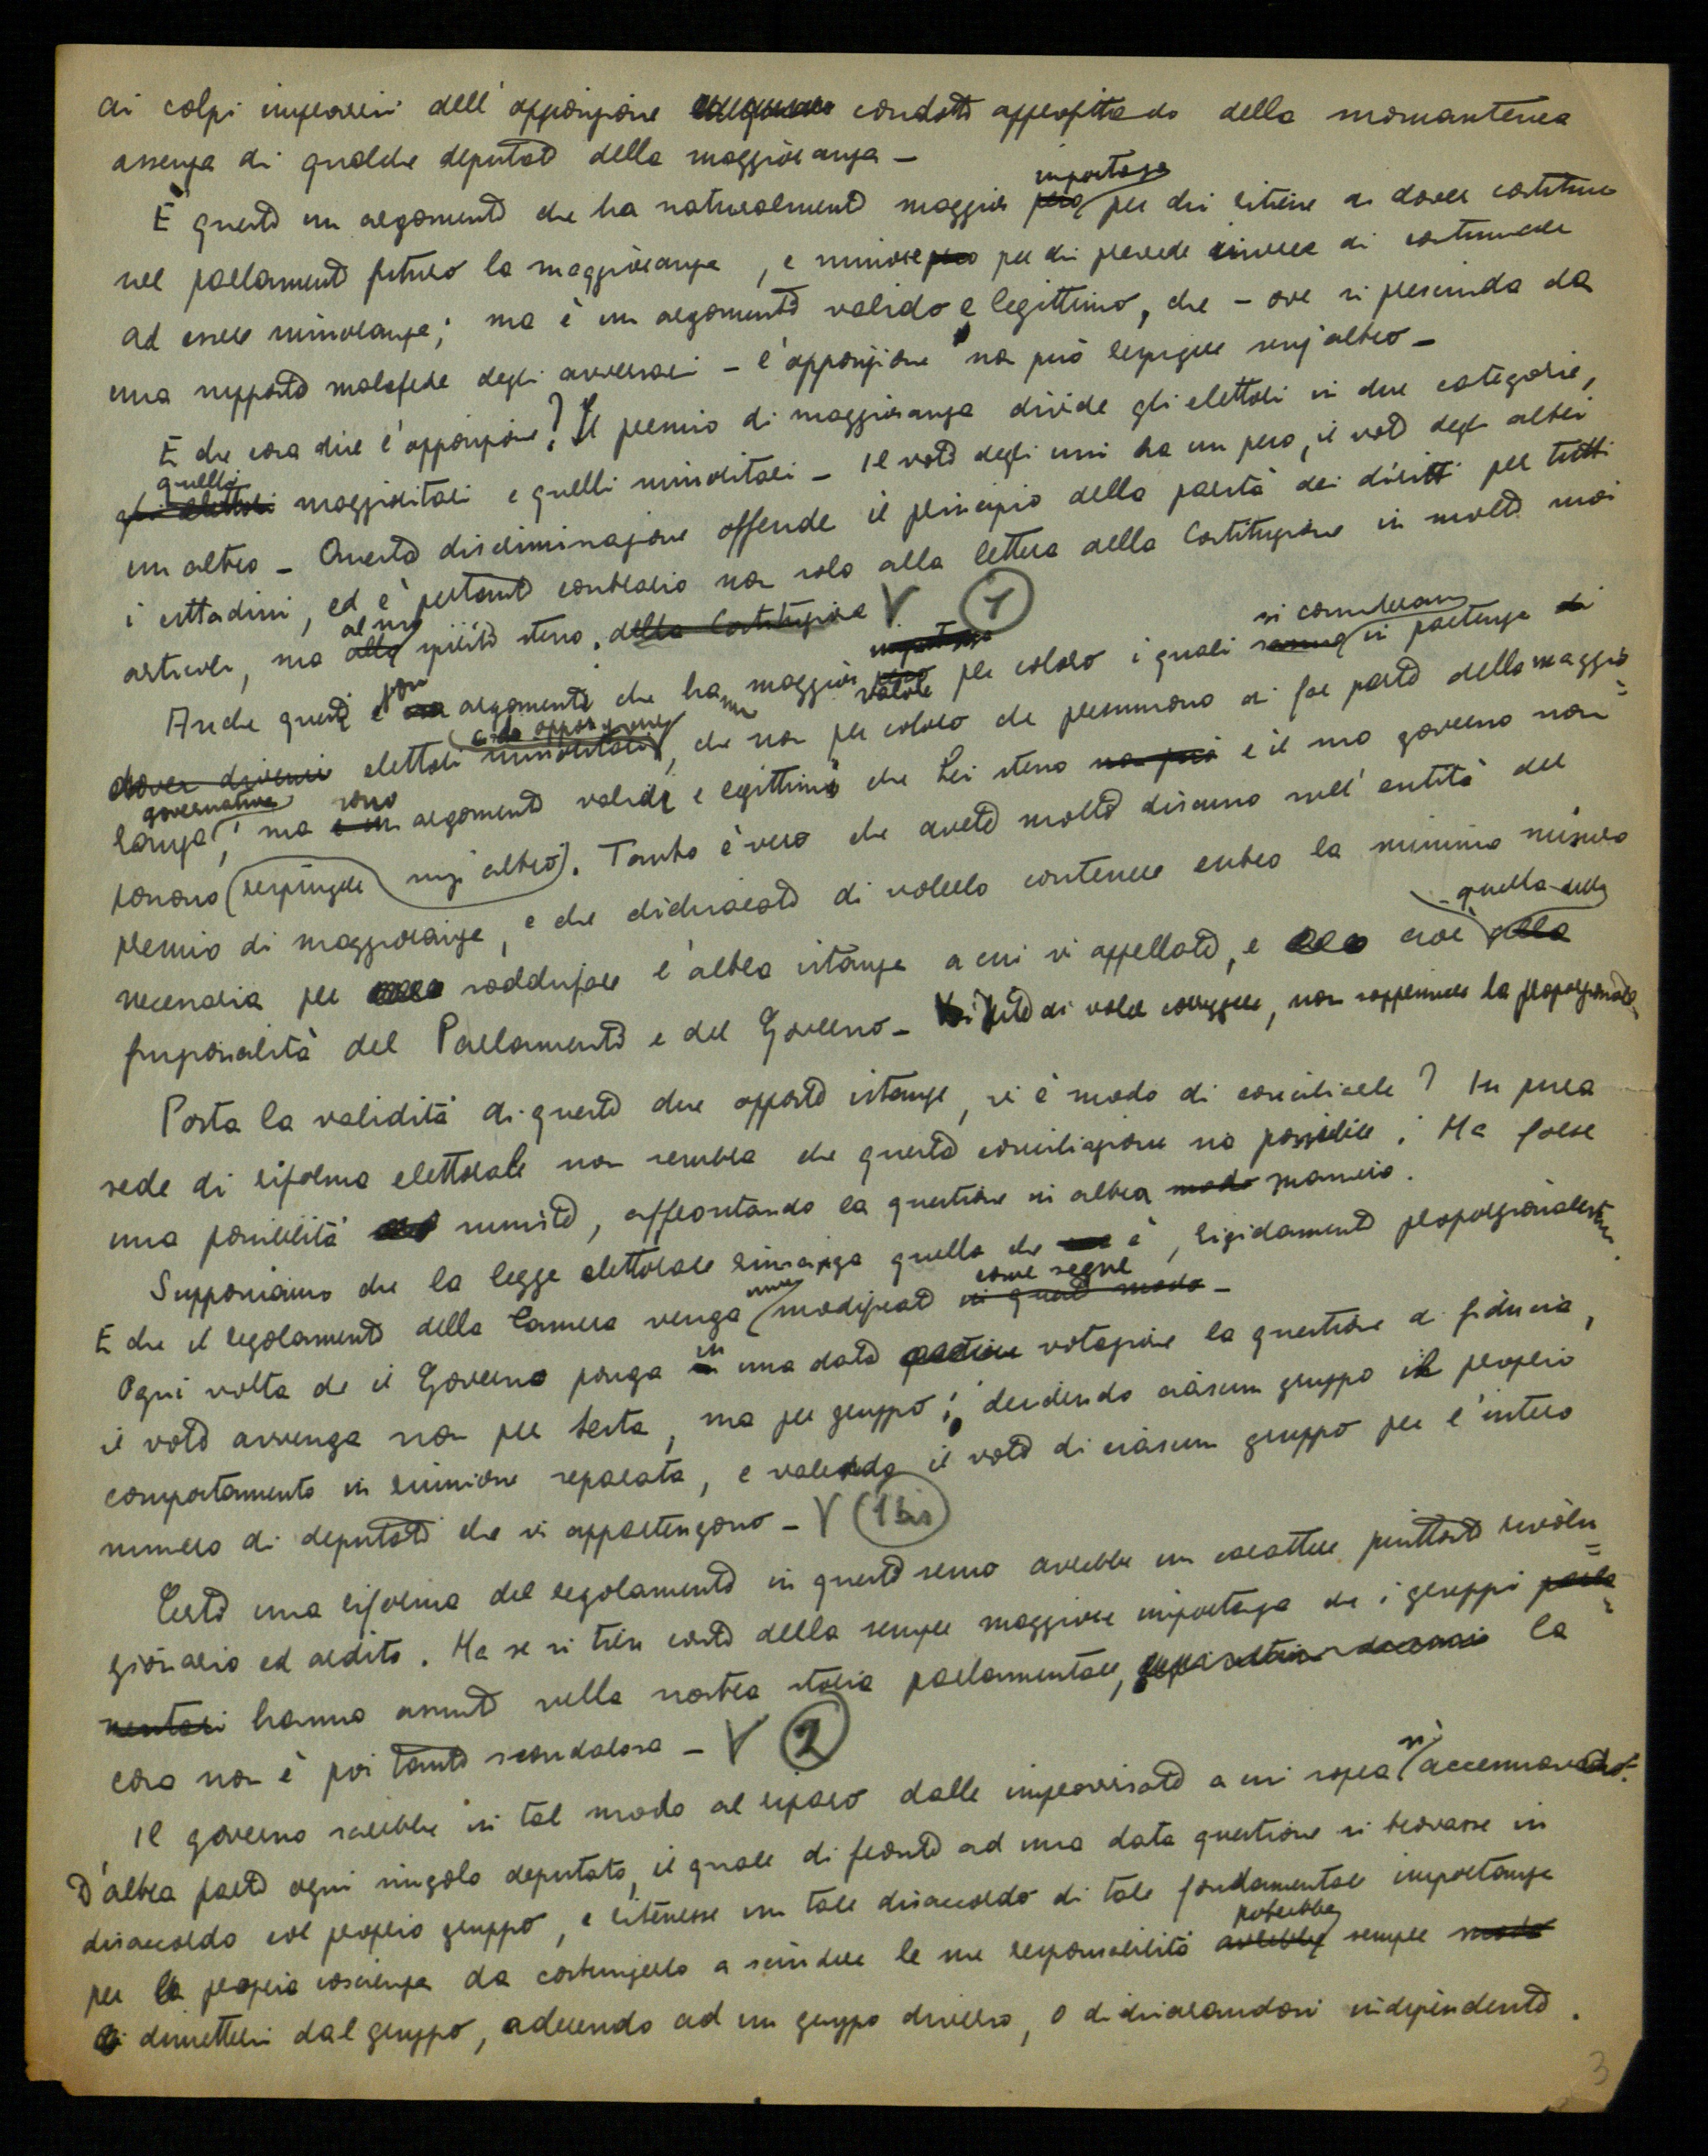 ai colpi improvvisi dell'opposizione condotti approfittando della momentanea
assenza di qualche deputato della maggioranza —
importanza
È questo un argomento che ha naturalmente maggior peso per chi ritiene di dover costituire
nel parlamento futuro la maggioranza, e minore peso per chi prevede invece di continuare
ad essere minoranza; ma è un argomento valido e legittimo, che — ove si prescinda da
una supposta malafede degli avversari — l'opposizione non può respingere senz'altro —
E che cosa dice l'opposizione? Il premio di maggioranza divide gli elettori in due categorie,
quelli
gli elettori maggioritari e quelli minoritari — Il voto degli uni ha un peso, il voto degli altri
un altro — Questa discriminazione offende il principio della parità dei diritti per tutti
i cittadini, ed è pertanto contraria non solo alla lettera della Costituzione in molti suoi
al suo
articoli, ma allo spirito stesso, della Costituzione V 1
si consideran
Anche questi son argomenti che hanno maggior peso valore per coloro i quali sanno in partenza di
e da opposizione
dover divenire elettori minoritari, che non per coloro che presumono di far parte della maggio=
governativa sono
ranza, ma è un argomenti validi e legittimi che Lei stesso non può e il suo governo non
possono respingere senz'altro. Tanto è vero che avete molto discusso sull'entità del
premio di maggioranza, e che dichiarate di volerlo contenere entro la minima misura
quella della
necessaria per soddisfare l'altra istanza a cui vi appellate, e cioè alla
funzionalità del Parlamento e del Governo — Voi dite di voler correggere, non sopprimere la proporzionale.
Posta la validità di queste due opposte istanze, vi è modo di conciliarle? In pura
sede di riforma elettorale non sembra che questa conciliazione sia possibile. Ma forse
una possibilità sussiste, affrontando la questione in altra modo maniera.
Supponiamo che la legge elettorale rimanga quella che è, rigidamente proporzionalistica.
come segue
E che il regolamento della Camera venga invece modificato in questo modo —
Ogni volta che il Governo ponga in una data votazione la questione di fiducia,
il voto avvenga non per testa, ma per gruppo; decidendo ciascun gruppo il proprio
comportamento in riunione separata, e valendo il voto di ciascun gruppo per l'intero
numero di deputati che vi appartengono — V 1 bis
Certo una riforma del regolamento in questo senso avrebbe un carattere piuttosto rivolu=
zionario ed ardito. Ma se si tien conto della sempre maggiore importanza che i gruppi parla=
mentari hanno assunto nella nostra storia parlamentare, la
cosa non è poi tanto scandalosa — V 2
si
Il governo sarebbe in tal modo al riparo dalle improvvisate a cui sopra accennava.
D'altra parte ogni singolo deputato, il quale di fronte ad una data questione si trovasse in
disaccordo col proprio gruppo, e ritenesse un tale disaccordo di tale fondamentale importanza
potrebbe
per la propria coscienza da costringerlo a scindere le sue responsabilità avrebbe sempre modo
di dimettersi dal gruppo, aderendo ad un gruppo diverso, o dichiarandosi indipendente.
3